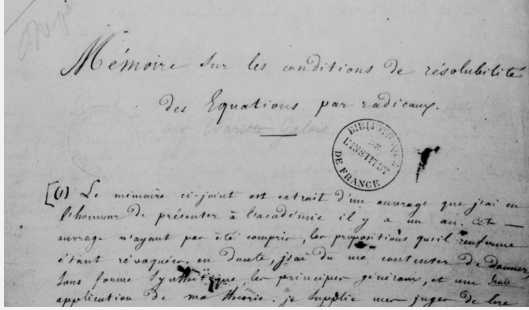 Mémoire sur les conditions de résolubilité
des Equations par radicaux.
par Evariste Galois
BIBLIOTHÈQUE
DE
L'INSTITUT
DE FRANCE
[(1) Le mémoire ci-joint est extrait d'un ouvrage que j'ai eu
l'honneur de présenter à l'académie il y a un an. Cet
ouvrage n'ayant pas été compris, les propositions qu'il renferme
étant révoquées en doute, j'ai du me contenter de donner
sous forme synthétique, les principes généraux, et une seule
application de ma théorie. je supplie mes juges de lire